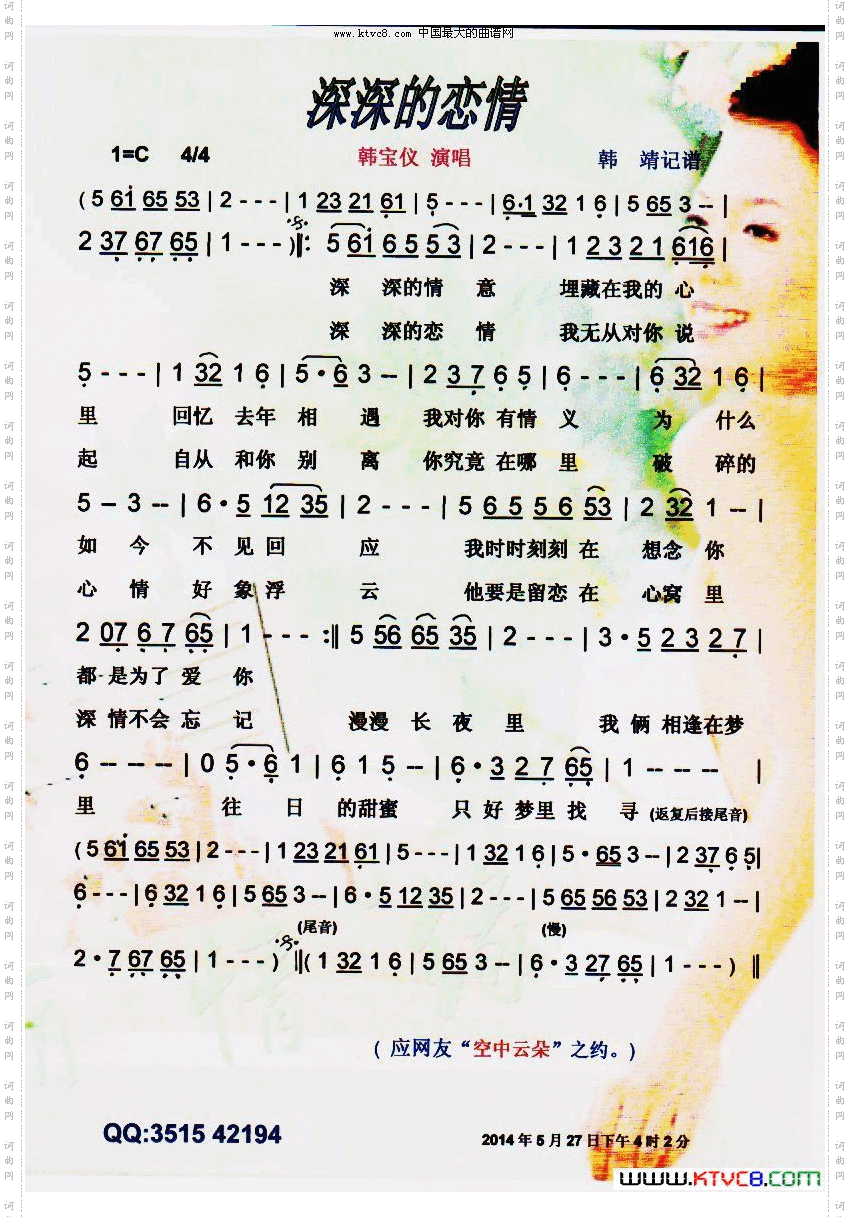 www.ktvc8.com 中国最大的曲谱网
深深的恋情
1=C 4/4 韩宝仪 演唱 韩 靖记谱
( 5 61 65 53 | 2 - - - | 1 23 21 61 | 5 - - - | 6·1 32 1 6 | 5 65 3 -- |
2 37 67 65 | 1 - - - )‖: 5 61 6 5 53 | 2 - - - | 1 2 3 2 1 616 |
深 深的情 意 埋藏在我的 心
深 深的恋 情 我无从对你 说
5 - - - | 1 32 1 6 | 5·6 3 -- | 2 3 7 6 5 | 6 - - - | 6 32 1 6 |
里 回忆 去年 相 遇 我对你 有情 义 为 什么
起 自从 和你 别 离 你究竟 在哪 里 破 碎的
5 - 3 -- | 6·5 12 35 | 2 - - - | 5 6 5 5 6 53 | 2 32 1 -- |
如 今 不 见回 应 我时时刻刻 在 想念 你
心 情 好 象浮 云 他要是留恋 在 心窝 里
2 07 6 7 65 | 1 - - - :‖ 5 56 65 35 | 2 - - - | 3·5 2 3 2 7 |
都 是为了 爱 你
深 情不会 忘 记 漫漫 长 夜 里 我 俩 相逢在梦
6 -- -- | 0 5·6 1 | 6 1 5 -- | 6·3 2 7 65 | 1 -- -- |
里 往 日 的甜蜜 只 好 梦里 找 寻 (返复后接尾音)
( 5 61 65 53 | 2 - - - | 1 23 21 61 | 5 - - - | 1 32 1 6 | 5· 65 3 -- | 2 37 6 5|
6 - - - | 6 32 1 6 | 5 65 3 -- | 6·5 12 35 | 2 - - - | 5 65 56 53 | 2 32 1 -- |
(尾音) (慢)
2·7 67 65 | 1 - - - ) ‖( 1 32 1 6 | 5 65 3 -- | 6·3 27 65 | 1 - - - ) ‖
( 应网友“空中云朵”之约。)
QQ:3515 42194 2014 年 5 月 27 日下午 4 时 2 分
www.KTVC8.com
词曲网